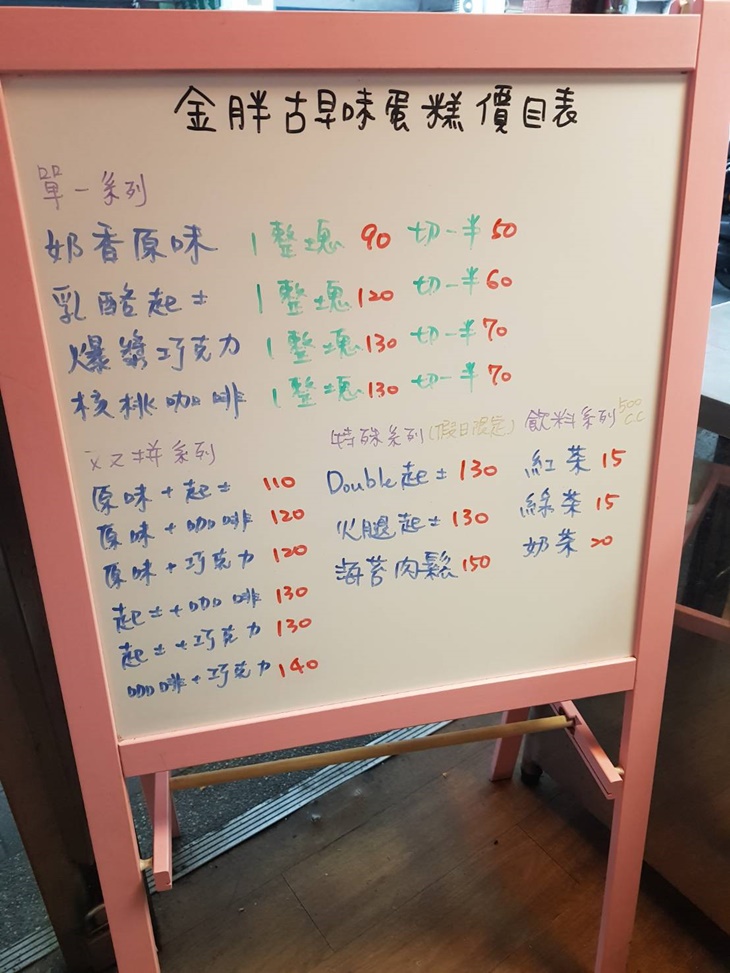 金胖古早味蛋糕價目表
單一系列
奶香原味 1整塊 90 切一半 50
乳酪起士 1整塊 120 切一半 60
爆漿巧克力 1整塊 130 切一半 70
核桃咖啡 1整塊 130 切一半 70
双拼系列
原味+起士 110
原味+咖啡 120
原味+巧克力 120
起士+咖啡 130
起士+巧克力 130
咖啡+巧克力 140
特殊系列(假日限定)
Double起士 130
火腿起士 130
海苔肉鬆 150
飲料系列 500 C.C
紅茶 15
綠茶 15
奶茶 20